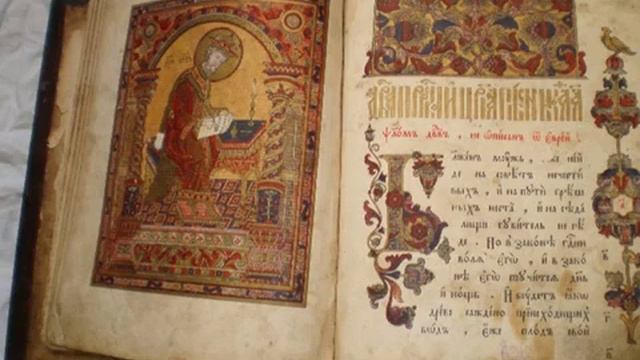 Ѱалом дв҃дъ , не ѡписан ѿ еврей
Блаженъ мꙋжъ , иже неи
де на свѣтъ нечести
выхъ , и на пꙋти грѣш
ныхъ неста , и на сѣда
лищи гꙋбитель не сѣ
де . Но в законѣ гдⷭ҇ни
волѧ єгѡ , и в зако
нѣ єгѡ поꙋчитсѧ днь
и нощь . И бꙋдетъ ꙗкѡ
древо саждено приисходищихъ
вѡдъ , єже плодъ свой